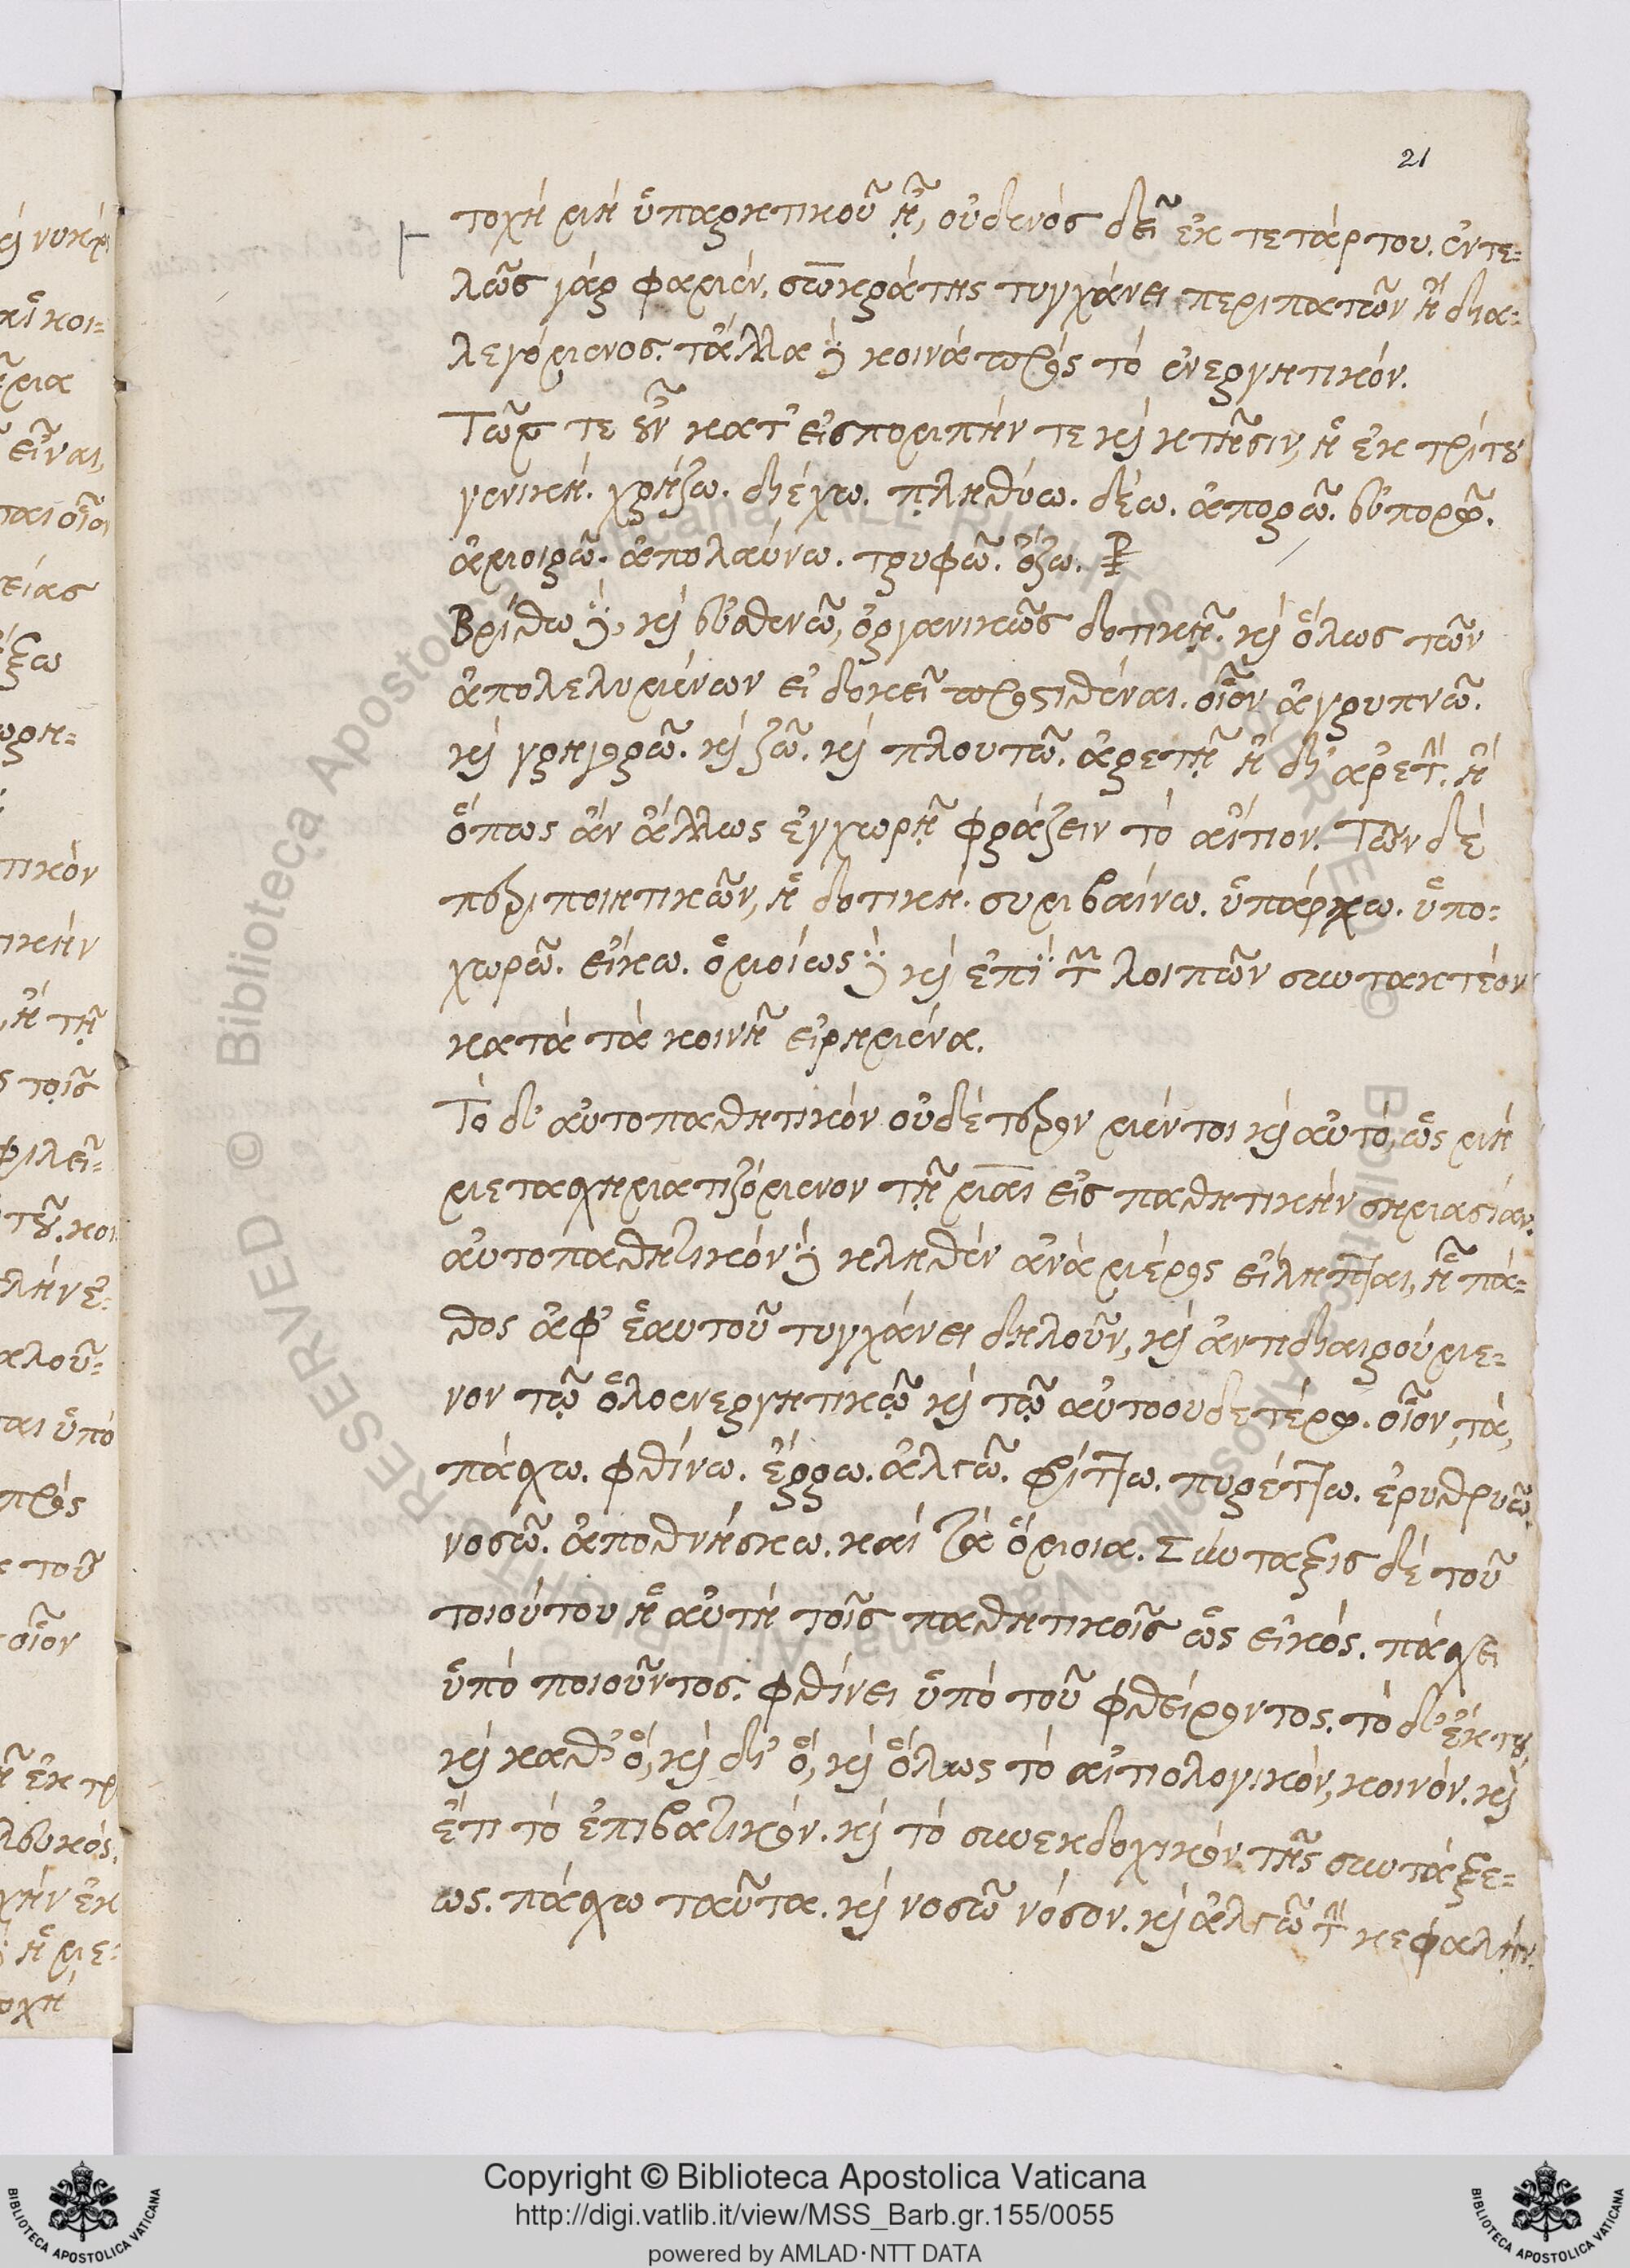 21
τοχὴ μὴ ὑπαρκτικοῦ ᾖ, οὐδενὸς δεῖ ἐκ τετάρτου. ἐντε=
λῶς γάρ φαμεν, σωκράτης τυγχάνει περιπατῶν ἢ δια=
λεγόμενος. τἄλλα δὲ κοινὰ πρὸς τὸ ἐνεργητικόν.
Τῶν τε οὖν κατ' εἰσπομπήν τε καὶ κτῆσιν, ἡ ἐκ τρίτου
γενική. χρήζω. διέχω. πληθύω. δέω. ἀπορῶ. εὐπορῶ.
ἀμοιρῶ. ἀπολαύνω. τρυφῶ. ὄζω.
Βρίθω δὲ, καὶ εὐθενῶ, ὀργανικῶς δοτικῇ. καὶ ὅλως τῶν
ἀπολελυμένων εἰ δοκεῖ προστιθέναι. οἷον ἀγρυπνῶ.
καὶ γρηγορῶ. καὶ ζῶ. καὶ πλουτῶ. ἀρετῇ ἢ δι' ἀρετήν. ἢ
ὅπως ἂν ἄλλως ἐγχωρῇ φράζειν τὸ αἴτιον. Τῶν δὲ
περιποιητικῶν, ἡ δοτική. συμβαίνω. ὑπάρχω. ὑπο=
χωρῶ. εἴκω. ὁμοίως δὲ καὶ ἐπὶ τῶν λοιπῶν συντακτέον
κατὰ τὰ κοινῇ εἰρημένα.
Τὸ δ' αὐτοπαθητικὸν οὐδέτερον μέν τοι καὶ αὐτὸ, ὡς μὴ
μετασχηματιζόμενον τῇ μαι εἰς παθητικὴν σημασίαν.
αὐτοπαθητικὸν δὲ κληθὲν ἀνὰ μέρος εἴληπται, ᾗ πά=
θος ἀφ' ἑαυτοῦ τυγχάνει δηλοῦν, καὶ ἀντιδιαιρούμε=
νον τῷ ὁλοενεργητικῷ καὶ τῷ αὐτοουδετέρῳ. οἷον, τὰ,
πάσχω. φθίνω. ἔρρω. ἀλγῶ. φρίττω. πυρέττω. ἐρυθριῶ.
νοσῶ. ἀποθνήσκω. καὶ τὰ ὅμοια. Σύνταξις δὲ τοῦ
τοιούτου ἡ αὐτὴ τοῖς παθητικοῖς ὡς εἰκός. πάσχει
ὑπὸ ποιοῦντος. φθίνει ὑπὸ τοῦ φθείροντος. τὸ δ' ἔκ του,
καὶ καθ' ὃ, καὶ δι' ὃ, καὶ ὅλως τὸ αἰτιολογικόν, κοινόν. καὶ
ἔτι τὸ ἐπιβατικόν. καὶ τὸ συνεκδοχικὸν τῆς συντάξε=
ως. πάσχω ταῦτα. καὶ νοσῶ νόσον. καὶ ἀλγῶ τὴν κεφαλήν.
Copyright © Biblioteca Apostolica Vaticana
http://digi.vatlib.it/view/MSS_Barb.gr.155/0055
powered by AMLAD·NTT DATA